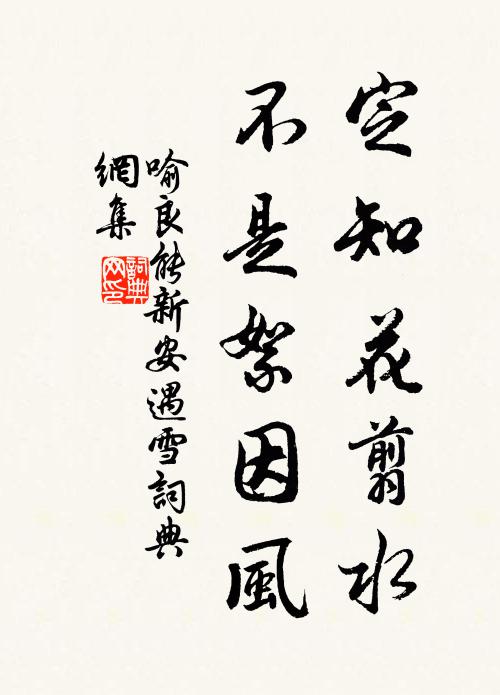 定知花剪水
不是絮因風
喻良能新安遇雪詞典
網集
詞典
网印